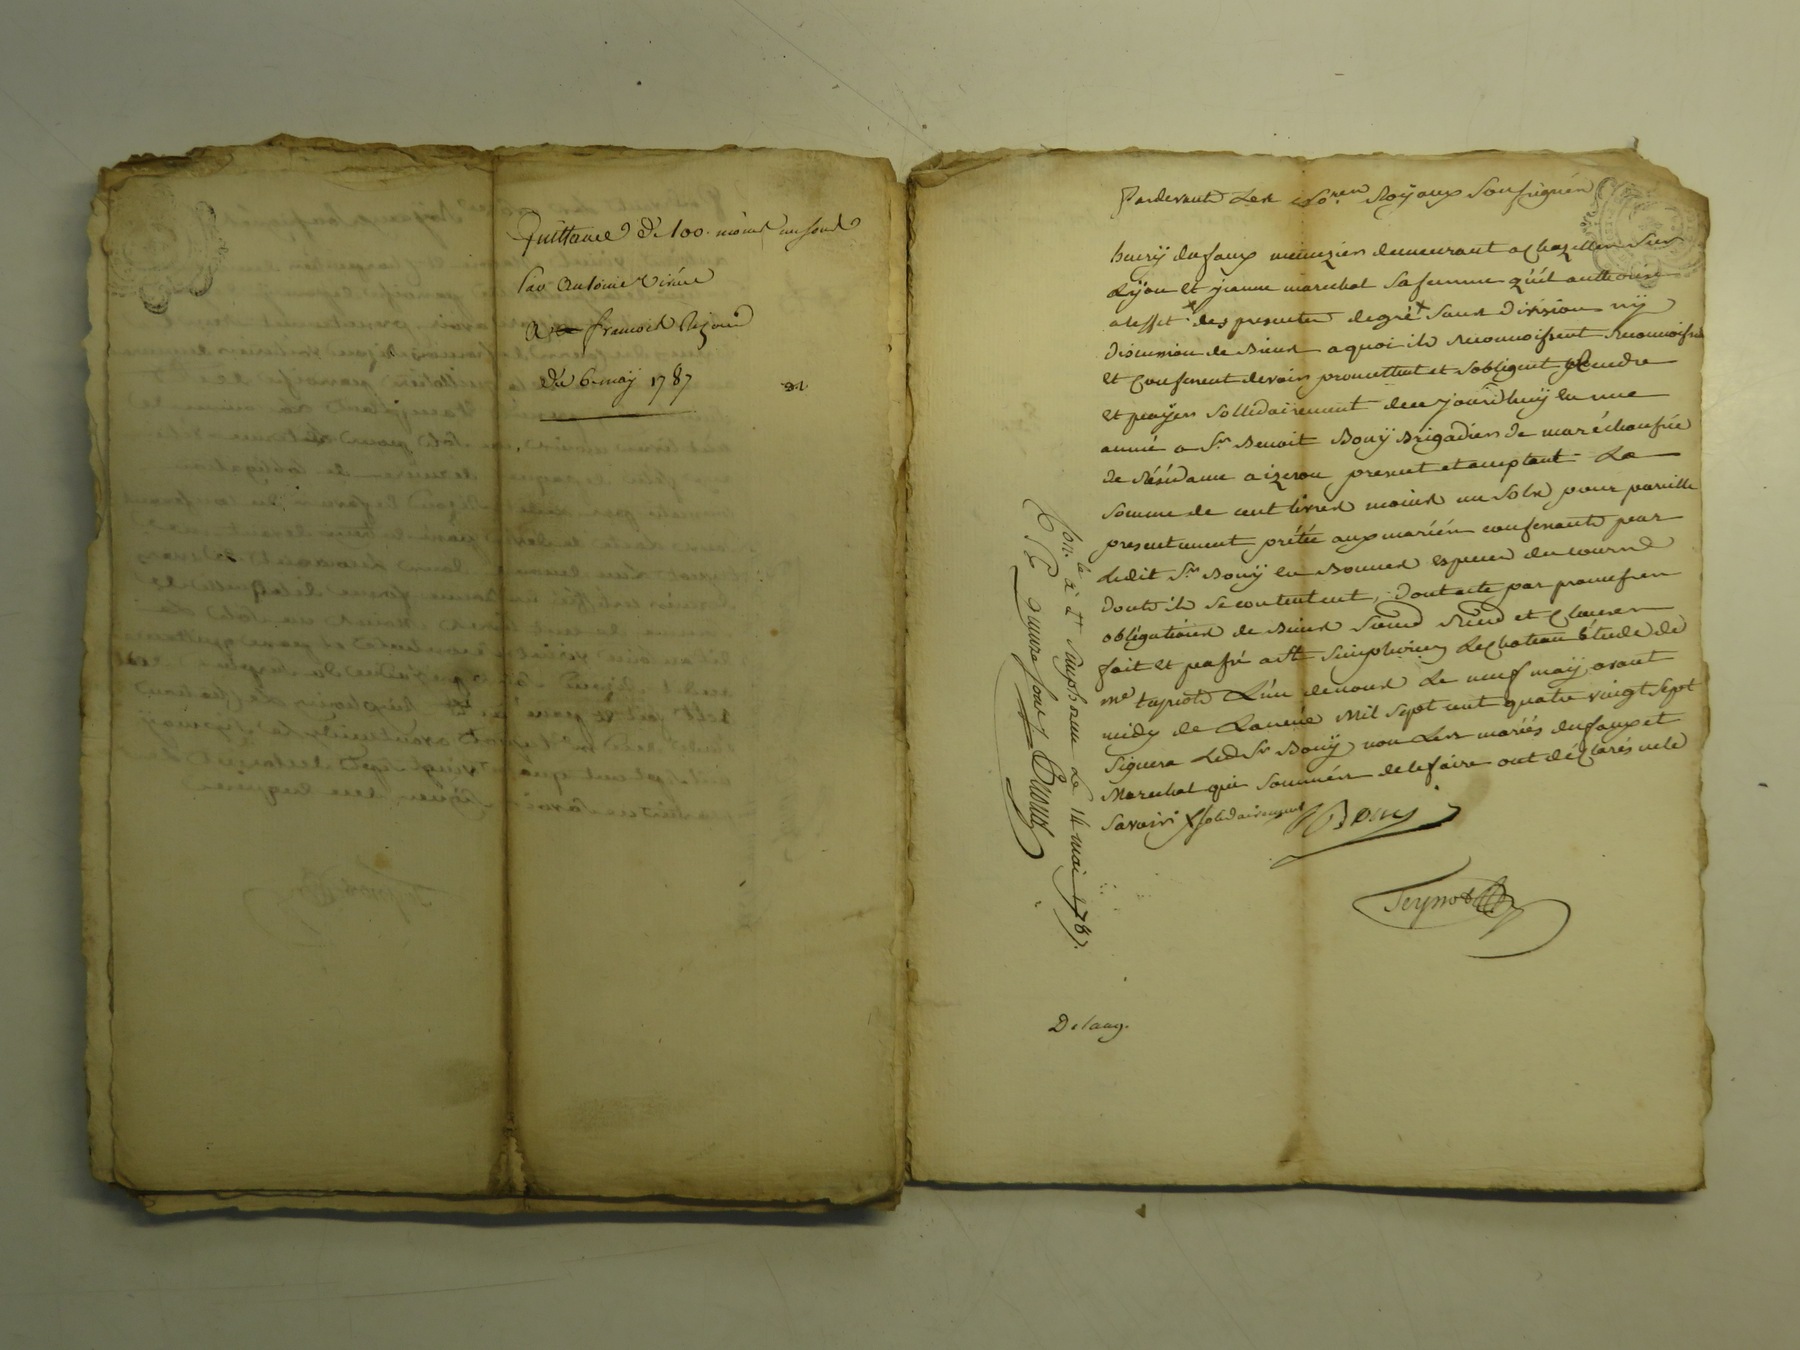 Quittance de 100ᵗ moins un sous
par antoine
a francois Rejoux
du 6 maÿ 1787
Pardevant Les No.res Royaux Soussignés
henrÿ dufaux menuzier demeurant a chazelles sur
Lÿon et jeanne marechal sa femme qu'il authorise
a leffet des presentes de gré sans division nÿ
discussion de biens a quoi ils renoncent Reconnoissent
et confessent devoir promettent et sobligent rendre
et payer sollidairement de ce jourd'huÿ en une
année a Sr. Benoit Bouÿ Brigadier de maréchaussée
de Résidance a izeron present et acceptant La
somme de cent livres moins un sols pour pareille
presentement prétée aux mariés confessants par
Ledit Sr Bouÿ en Bonnes especes du cours
dont ils se contentent, dont acte par promesses
obligations de Biens soumd Renond et clauses
fait et passé a St Simphorien Le chateau étude de
me teynot L'un de nous Le neuf maÿ avant
midy de L'année Mil Sept cent quatre vingt Sept
Signera Led Sr Bouÿ non Les mariés dufaux et
Marechal qui sommés de le faire ont déclarés ne le
savoir solidairement
Bouy
Teynot
Con.lé à St Simphorien Le 14 mai 1787.
Delauq.